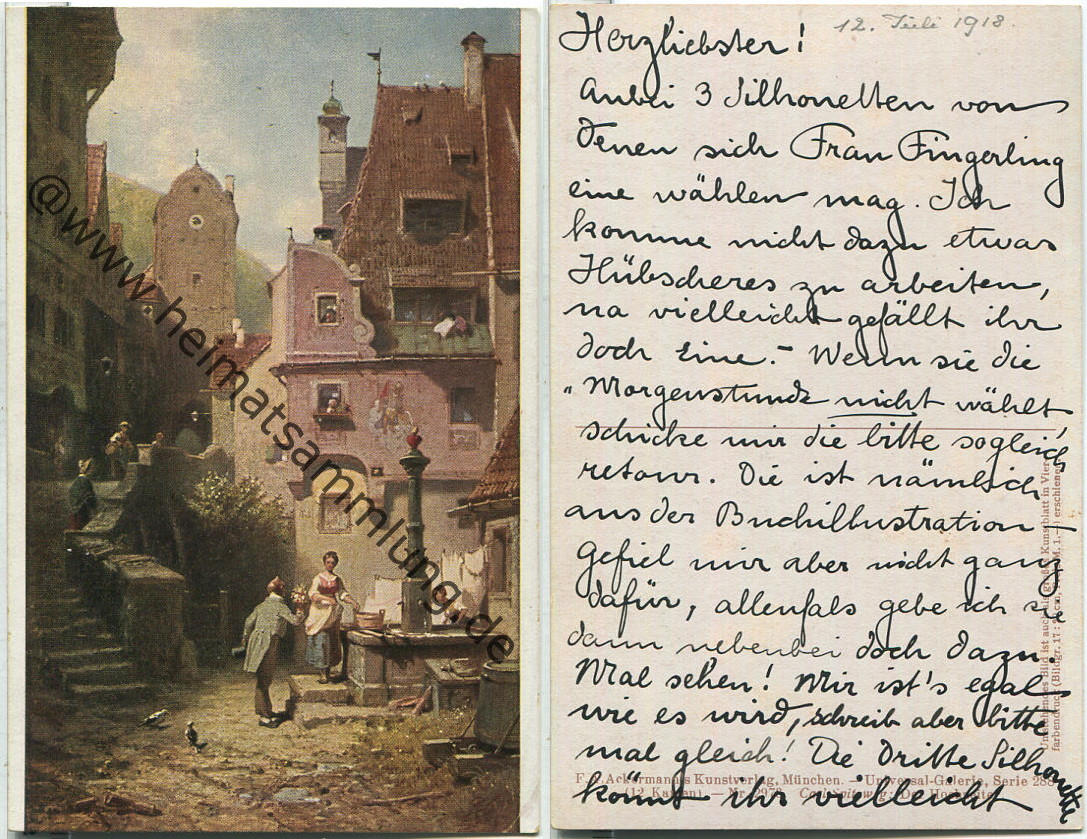 @www.heimatsammlung.de
12. Juli 1918.
Herzliebster!
Anbei 3 Silhouetten von
denen sich Frau Fingerling
eine wählen mag. Ich
komme nicht dazu etwas
Hübscheres zu arbeiten,
na vielleicht gefällt ihr
doch eine. – Wenn sie die
"Morgenstunde nicht wählt
schicke mir die bitte sogleich
retour. Die ist nämlich
aus der Buchillustration –
gefiel mir aber nicht ganz
dafür, allenfalls gebe ich sie
dann nebenbei doch dazu.
Mal sehen! Mir ist's egal
wie es wird, schreib aber bitte
mal gleich! Die dritte Silhouette
könnt ihr vielleicht
F. A. Ackermann's Kunstverlag, München. — Universal-Galerie, Serie
(12 Karten). — Nr. Carl Spitzweg: Der
Umstehendes Bild ist auch als großes Kunstblatt in Vier-
farbendruck (Bildgr. 17 : M. 1.—) erschienen